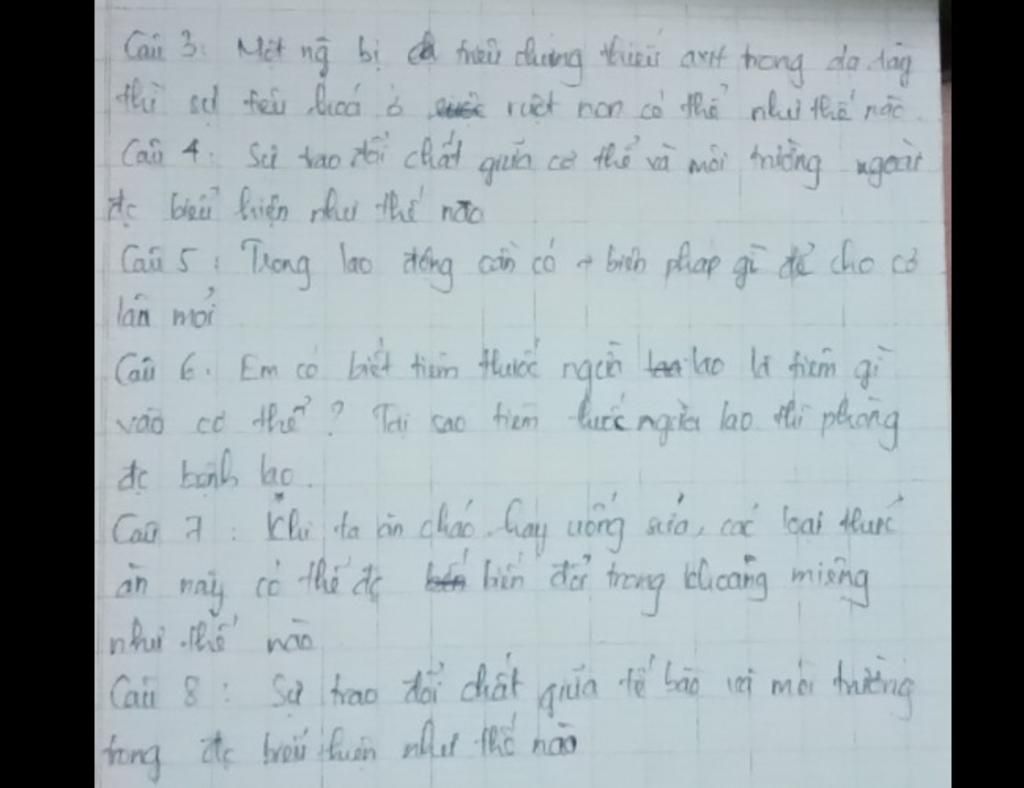 Câu 3: Một ng bị triệu chứng thiếu axit trong dạ dày
thì sự tiêu hoá ở ruột non có thể như thế nào.
Câu 4: Sự trao đổi chất giữa cơ thể và môi trường ngoài
đc biểu hiện như thế nào
Câu 5: Trong lao động cần có biện pháp gì để cho cơ
lâu mỏi
Câu 6. Em có biết tiêm thuốc ngừa lao là tiêm gì
vào cơ thể? Tại sao tiêm thuốc ngừa lao thì phòng
đc bệnh lao.
Câu 7: Khi ta ăn cháo hay uống sữa, các loại thức
ăn này có thể đc biến đổi trong khoang miệng
như thế nào
Câu 8: Sự trao đổi chất giữa tế bào với môi trường
trong đc biểu hiện như thế nào